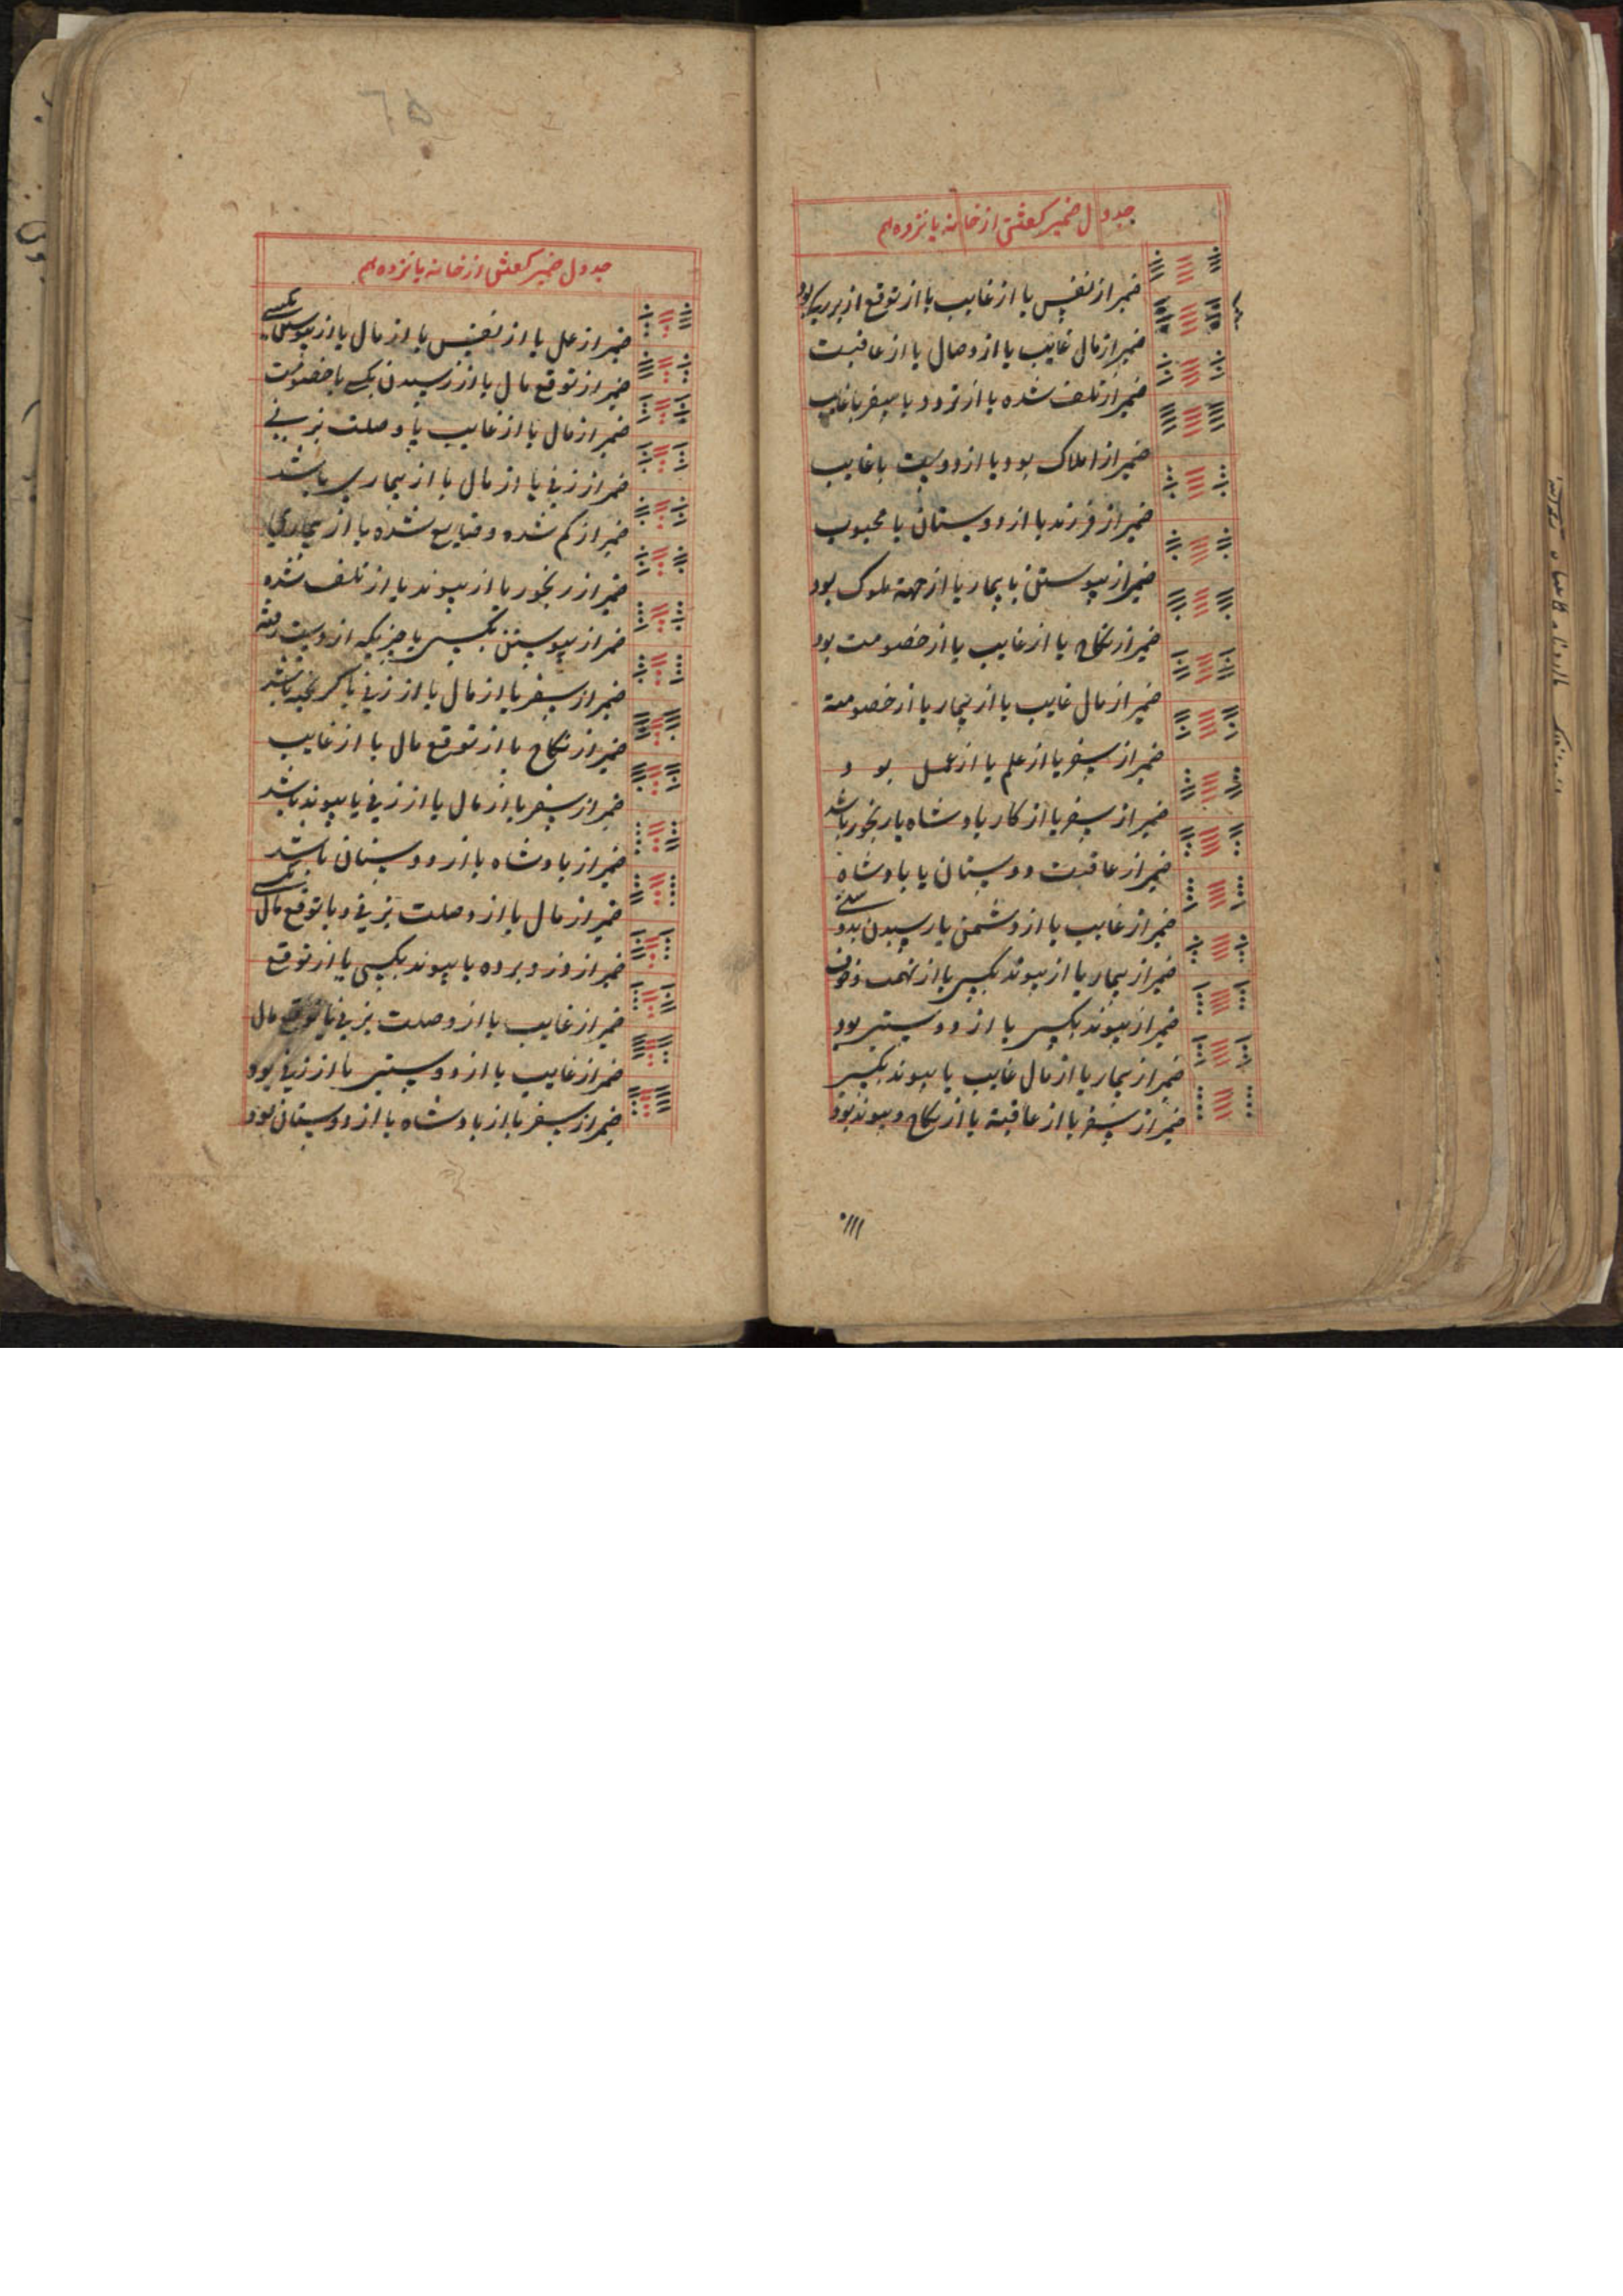 جدول ضمیر گفتن از خانه پانزدهم
ضمیر از نفس یا از غایب یا از توقع از بزرگی بود
ضمیر از مال غایب یا از وصال یا از عاقبت
ضمیر از تلف شده یا از تردد یا سفر یا غایب
ضمیر از املاک بود یا از دوست یا غایب
ضمیر از فرزند یا از دوستان یا محبوب
ضمیر از پیوستن یا بیمار یا از جهة ملوک بود
ضمیر از نکاح یا از غایب یا از خصومت بود
ضمیر از مال غایب یا از بیمار یا از خصومة
ضمیر از سفر یا از علم یا از عمل بود
ضمیر از سفر یا از کار پادشاه یا رنجور باشد
ضمیر از عاقبت دوستان یا پادشاه
ضمیر از غایب یا از دشمن یا رسیدن بدوستی
ضمیر از بیمار یا از پیوند بکسی یا از تهمت و خوف
ضمیر از پیوند بکسی یا از دوستی بود
ضمیر از بیمار یا از مال غایب یا پیوند بکسی
ضمیر از سفر یا از عاقبة یا از نکاح و پیوند بود
جدول ضمیر گفتن از خانه پانزدهم
ضمیر از عمل یا از نفس یا از مال یا از پیوستن بکسی
ضمیر از توقع مال یا از رسیدن بکسی یا خصومت
ضمیر از مال یا از غایب یا وصلت بزنی
ضمیر از زنی یا از مال یا از بیماری باشد
ضمیر از گم شده و ضایع شده یا از بیماری
ضمیر از رنجور یا از پیوند یا از تلف شده
ضمیر از پیوستن بکسی یا چیزیکه از دست رفته
ضمیر از سفر یا از مال یا از زنی یا گریخته باشد
ضمیر از نکاح یا از توقع مال یا از غایب
ضمیر از سفر یا از مال یا از زنی یا پیوند باشد
ضمیر از پادشاه یا از دوستان باشد
ضمیر از مال یا از وصلت بزنی و یا توقع مال بکسی
ضمیر از دزد و برده یا پیوند بکسی یا از توقع
ضمیر از غایب یا از وصلت بزنی یا توقع مال
ضمیر از غایب یا از دوستی یا از زنی بود
ضمیر از سفر یا از پادشاه یا از دوستان بود